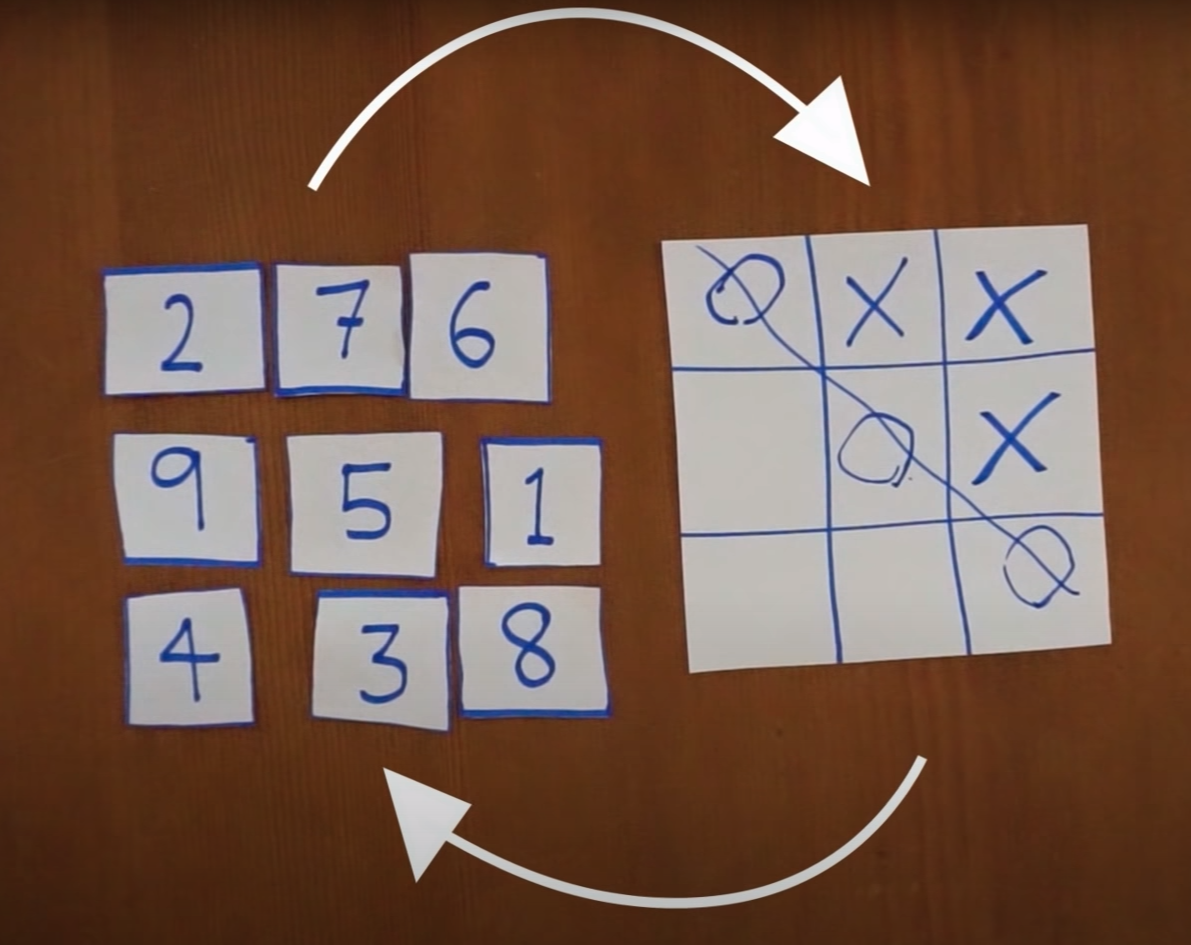 2 7 6
9 5 1
4 3 8
O X X
O X
O